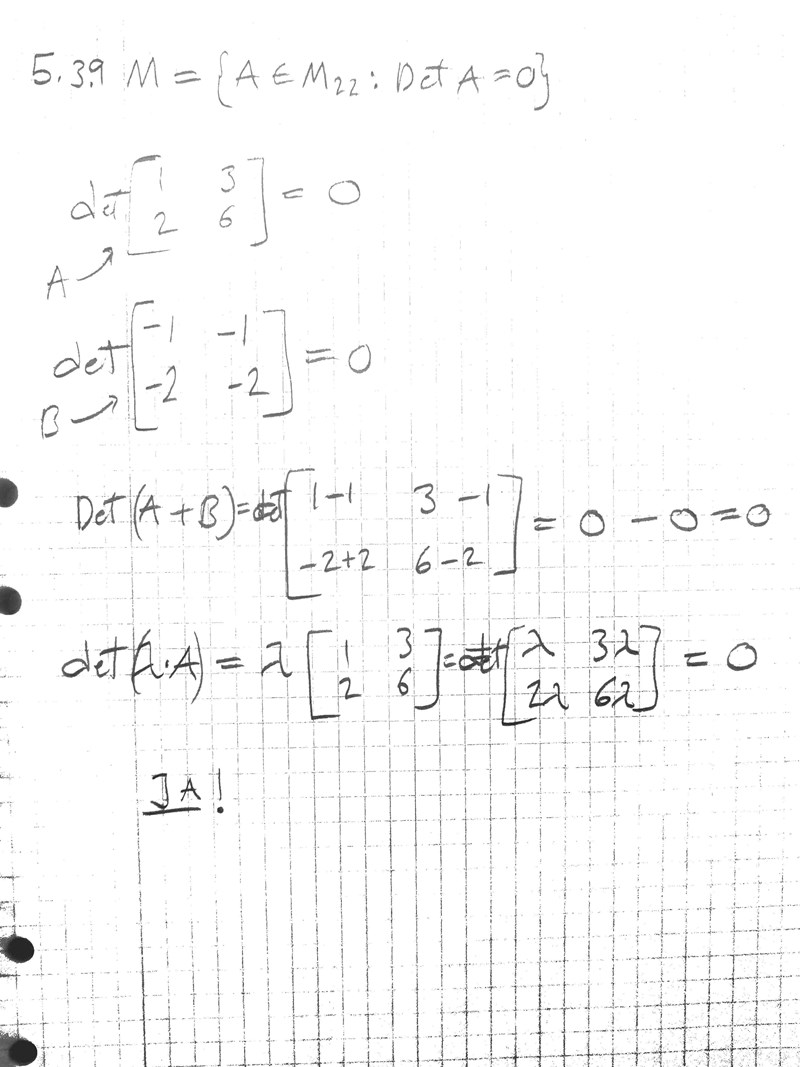 5.39 M = {A ∈ M₂₂ : Det A = 0}
det [1 3
2 6] = 0
A
det [-1 -1
-2 -2] = 0
B
Det (A + B) = det [1-1 3-1
-2+2 6-2] = 0 - 0 = 0
det (λ·A) = λ [1 3
2 6] = det [λ 3λ
2λ 6λ] = 0
JA!